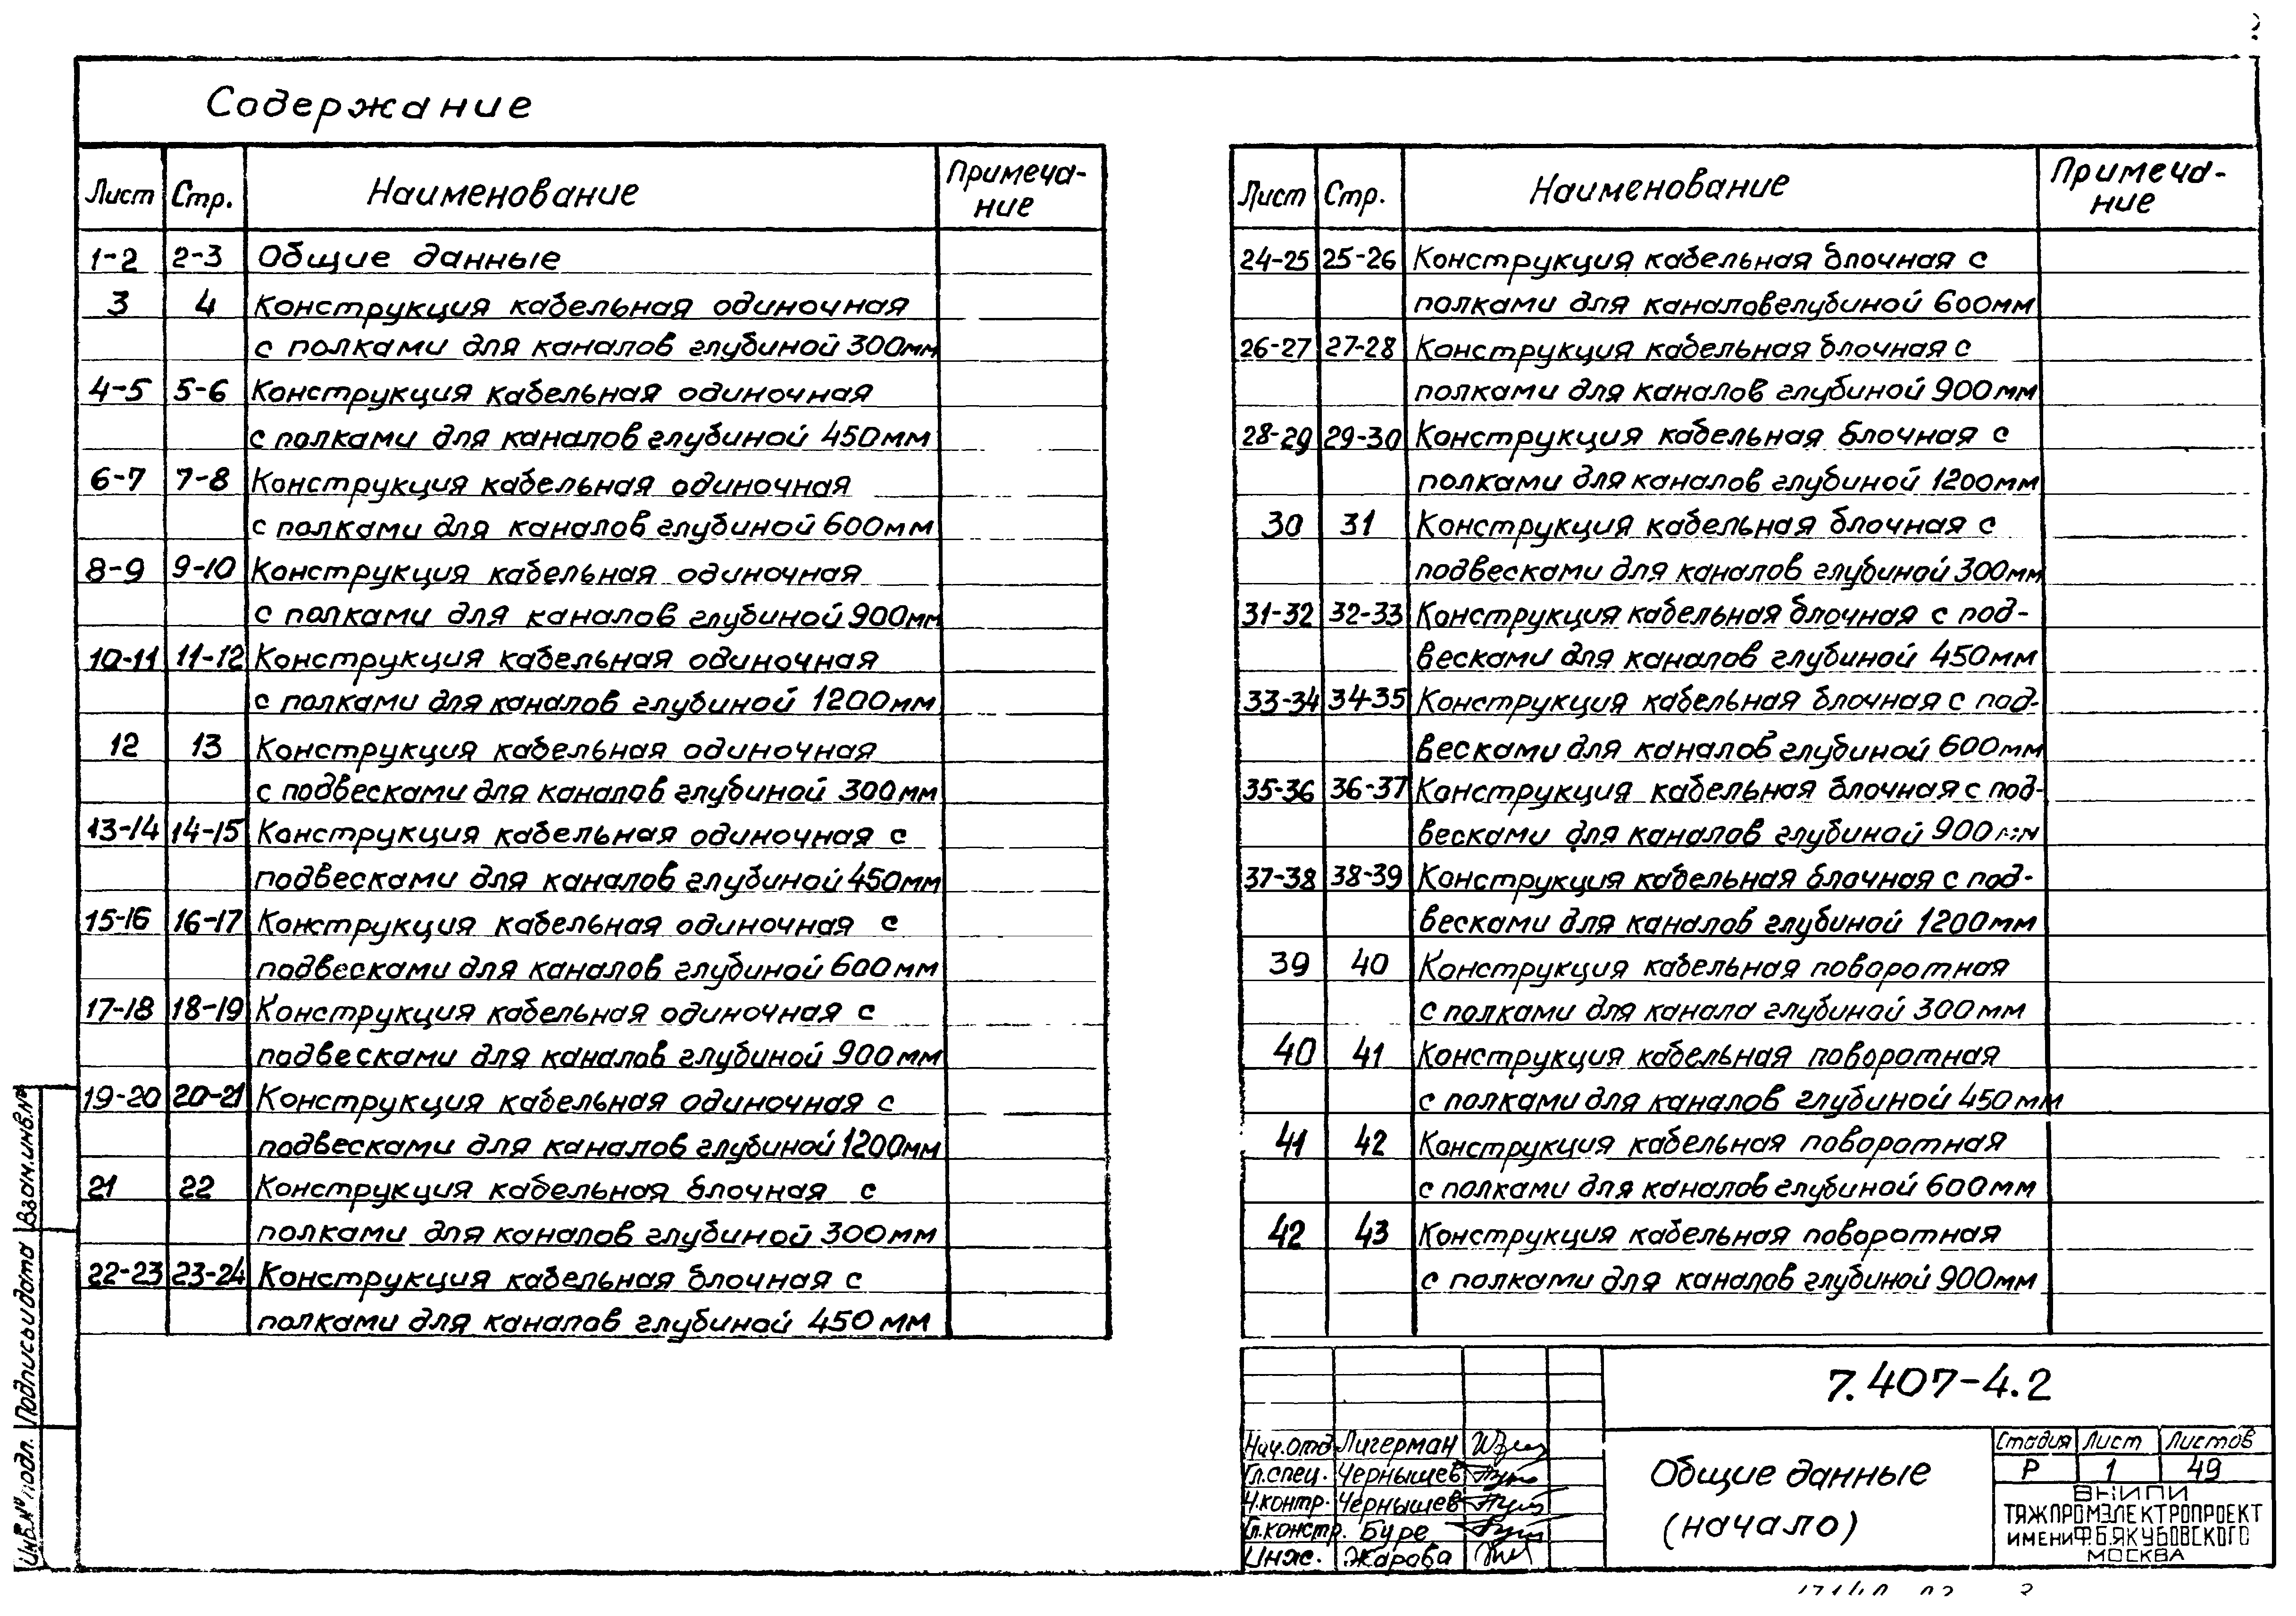 Содержание
Лист Стр. Наименование Примеча-
ние
1-2 2-3 Общие данные
3 4 Конструкция кабельная одиночная
с полками для каналов глубиной 300мм
4-5 5-6 Конструкция кабельная одиночная
с полками для каналов глубиной 450мм
6-7 7-8 Конструкция кабельная одиночная
с полками для каналов глубиной 600мм
8-9 9-10 Конструкция кабельная одиночная
с полками для каналов глубиной 900мм
10-11 11-12 Конструкция кабельная одиночная
с полками для каналов глубиной 1200мм
12 13 Конструкция кабельная одиночная
с подвесками для каналов глубиной 300мм
13-14 14-15 Конструкция кабельная одиночная с
подвесками для каналов глубиной 450мм
15-16 16-17 Конструкция кабельная одиночная с
подвесками для каналов глубиной 600мм
17-18 18-19 Конструкция кабельная одиночная с
подвесками для каналов глубиной 900мм
19-20 20-21 Конструкция кабельная одиночная с
подвесками для каналов глубиной 1200мм
21 22 Конструкция кабельная блочная с
полками для каналов глубиной 300мм
22-23 23-24 Конструкция кабельная блочная с
полками для каналов глубиной 450мм
Лист Стр. Наименование Примеча-
ние
24-25 25-26 Конструкция кабельная блочная с
полками для каналовглубиной 600мм
26-27 27-28 Конструкция кабельная блочная с
полками для каналов глубиной 900мм
28-29 29-30 Конструкция кабельная блочная с
полками для каналов глубиной 1200мм
30 31 Конструкция кабельная блочная с
подвесками для каналов глубиной 300мм
31-32 32-33 Конструкция кабельная блочная с под-
весками для каналов глубиной 450мм
33-34 34-35 Конструкция кабельная блочная с под-
весками для каналов глубиной 600мм
35-36 36-37 Конструкция кабельная блочная с под-
весками для каналов глубиной 900мм
37-38 38-39 Конструкция кабельная блочная с под-
весками для каналов глубиной 1200мм
39 40 Конструкция кабельная поворотная
с полками для канала глубиной 300мм
40 41 Конструкция кабельная поворотная
с полками для каналов глубиной 450мм
41 42 Конструкция кабельная поворотная
с полками для каналов глубиной 600мм
42 43 Конструкция кабельная поворотная
с полками для каналов глубиной 900мм
7.407-4.2
Нач.отд Лигерман
Гл.спец. Чернышев
Н.контр. Чернышев
Гл.констр. Буре
Инж. Жарова
Общие данные
(начало)
Стадия Лист Листов
Р 1 49
ВНИПИ
ТЯЖПРОМЭЛЕКТРОПРОЕКТ
ИМЕНИ Ф.Б.ЯКУБОВСКОГО
МОСКВА
Инв.№ подл. Подпись и дата Взам.инв.№